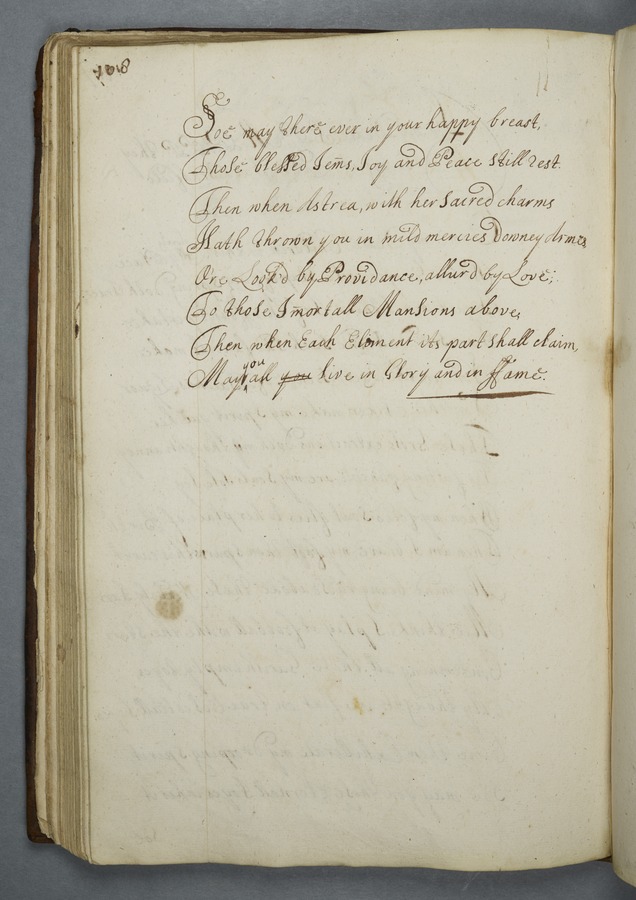 Soe may there ever in your happy breast,
Those blessed Jem̄s, Joy and Peace still rest.
Then when Astrea, with her Sacred charms
Hath thrown you in mild mercies Downey Armes
Ore Look'd by Providance, allurd by Love;
To those Im̄ortall Mansions above,
Then when Each Eliment its part shall claim,
May you all you live in Story and in ffame.